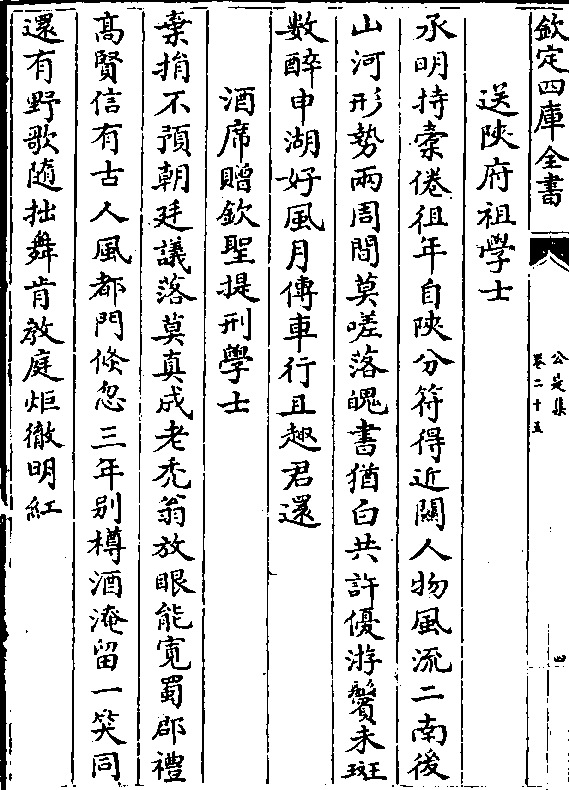 欽定四庫全書
公是集
卷二十五
四
送陜府祖學士
承明持槖倦徂年自陜分符得近關人物風流二南後
山河形勢兩周間莫嗟落魄書猶白共許優游鬢未斑
數醉申湖好風月傳車行且趣君還
酒席贈欽聖提刑學士
棄捐不預朝廷議落莫真成老禿翁放眼能寛蜀郡禮
髙賢信有古人風都門倐忽三年别樽酒淹留一笑同
還有野歌随拙舞肯教庭炬徹明紅